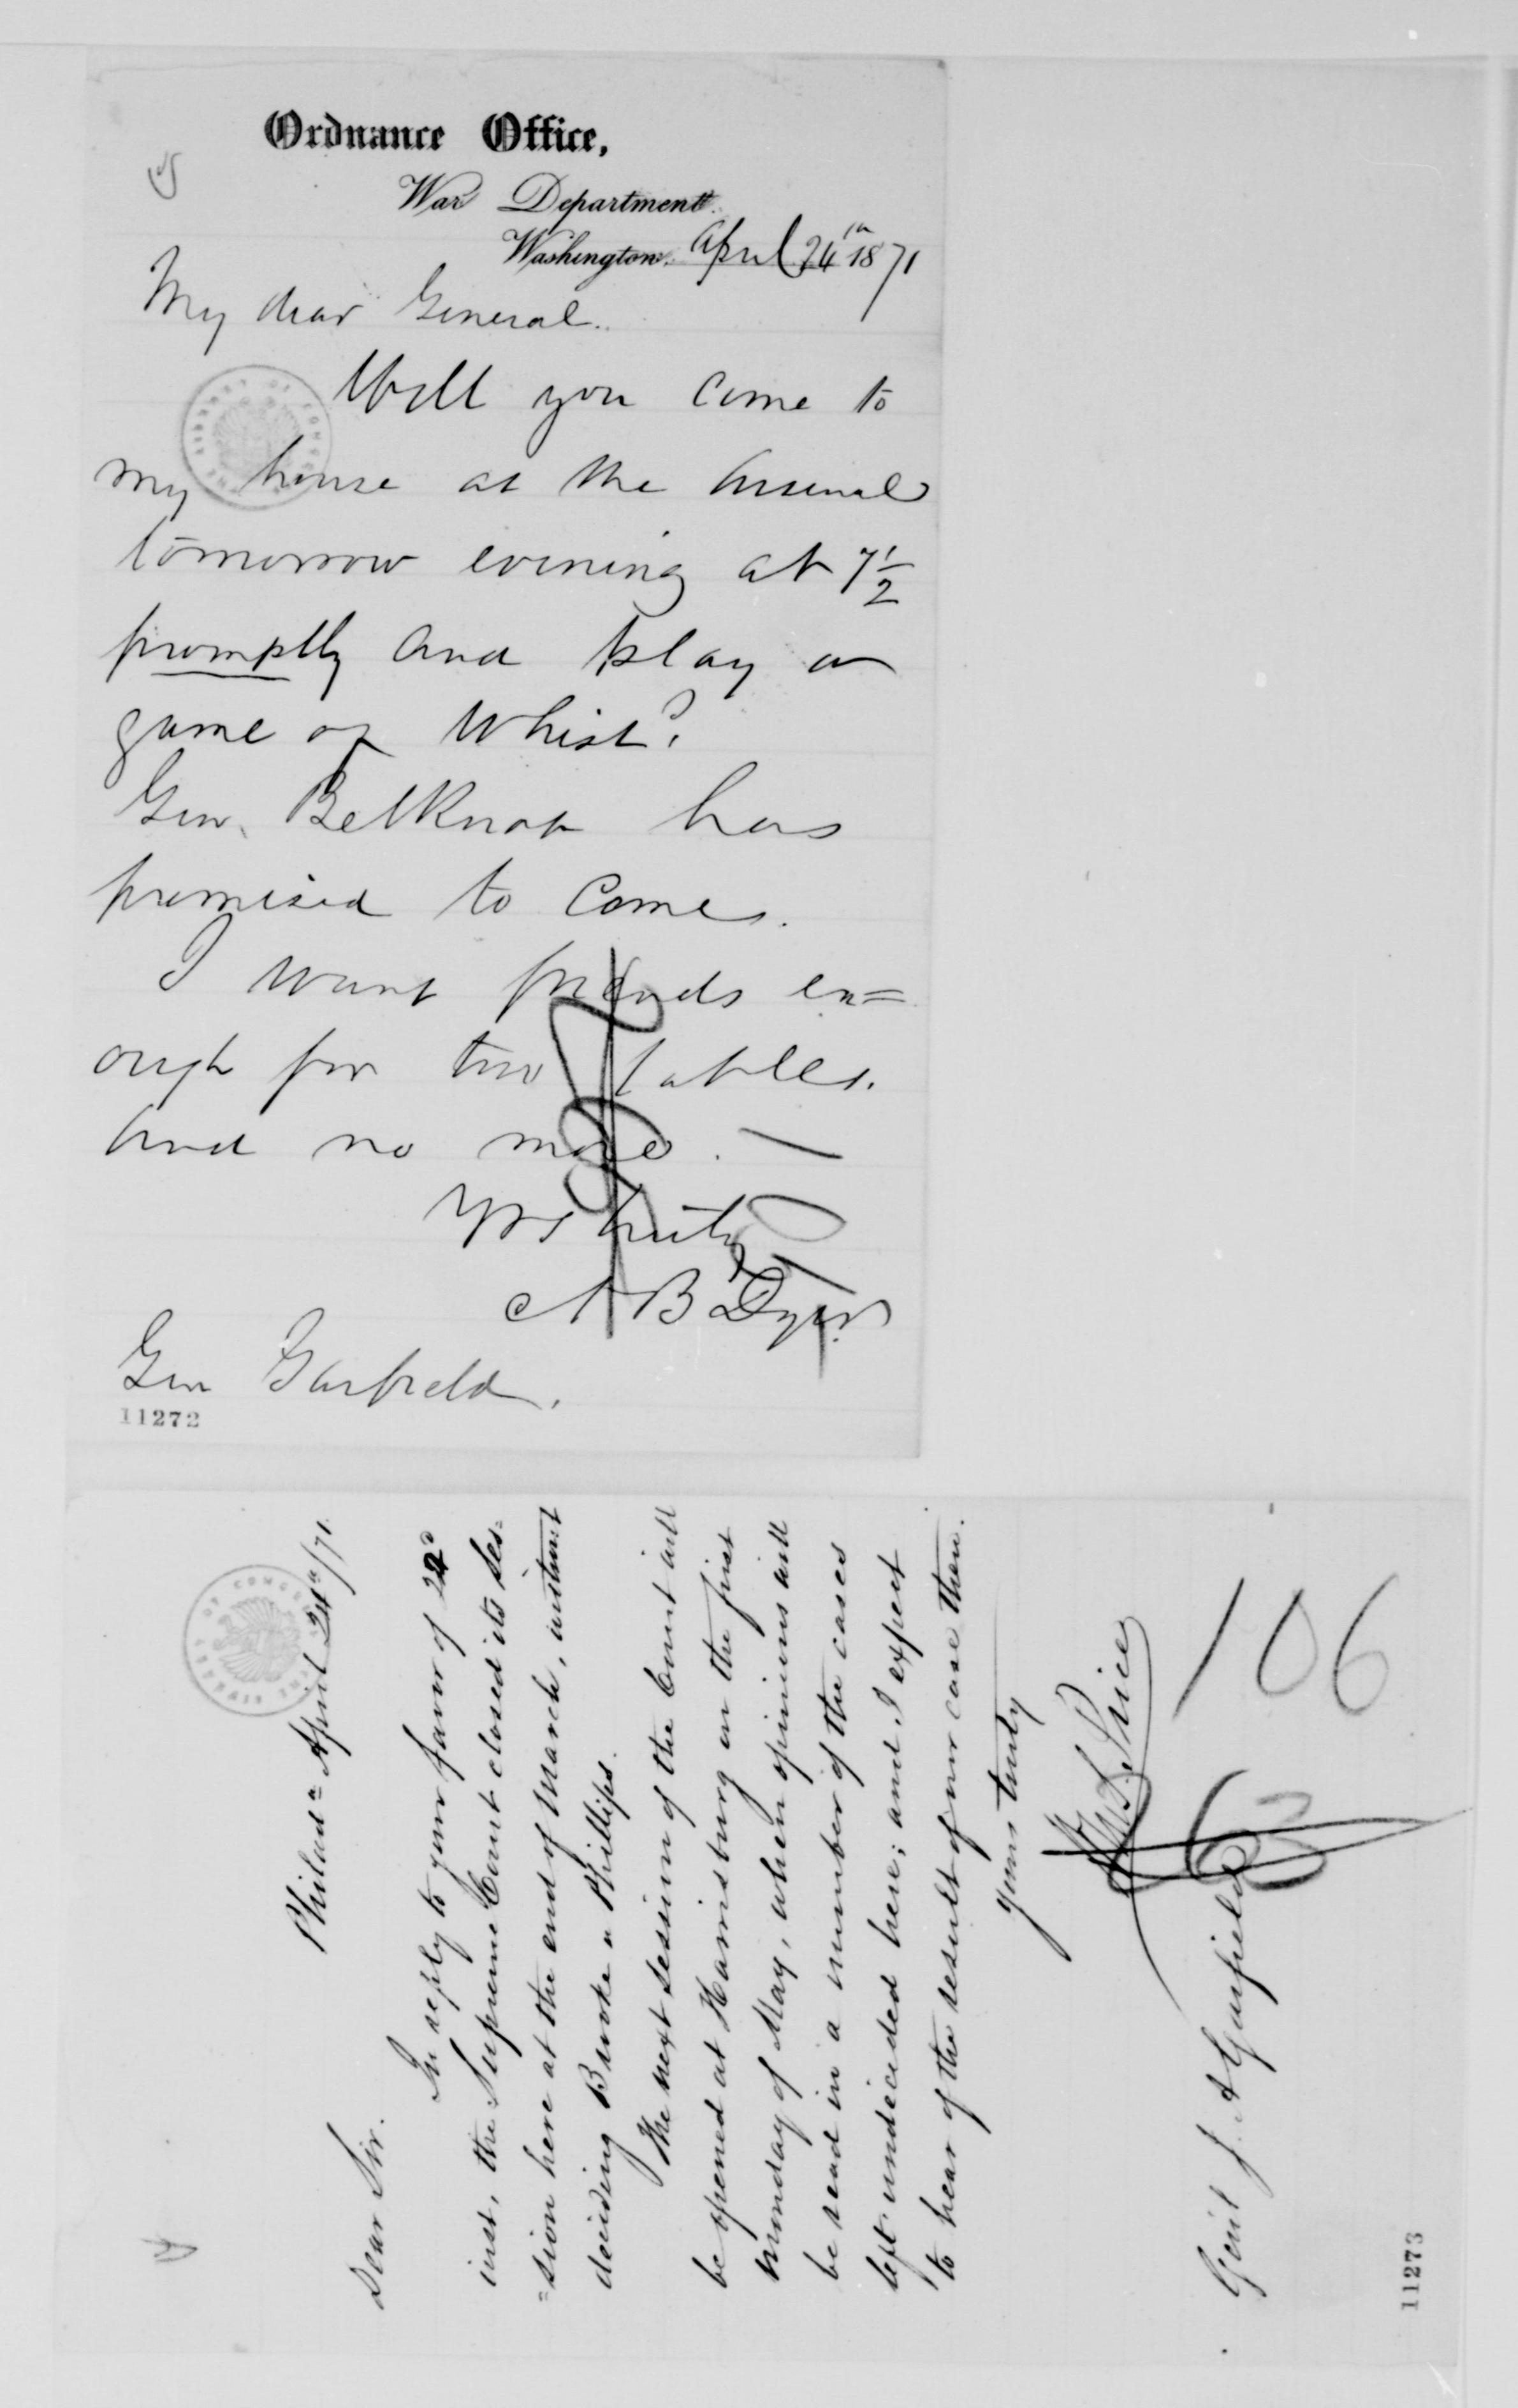 Ordnance Office,
War Department.
Washington. April 24th 1871
My dear General.
Will you come to
my house at the Arsenal
tomorrow evening at 7 1/2
promptly and play a
game of Whist?
Gen. Belknap has
promised to come.
I want friends en=
ough for two tables.
and no more. —
Yrs truly
A B Dyer
Gen Garfield.
11272
Philada April 24th/71.
Dear Sir.
In reply to your favor of 22d
inst, the Supreme Court closed its ses=
=sion here at the end of March, without
deciding Brooke v Phillips.
The next session of the Court will
be opened at Harrisburg on the first
Monday of May, when opinions will
be read in a number of the cases
left undecided here; and I expect
to hear of the result of our case then.
Yours truly
Wm S. Price
106
63
Genl J. A Garfield
11273